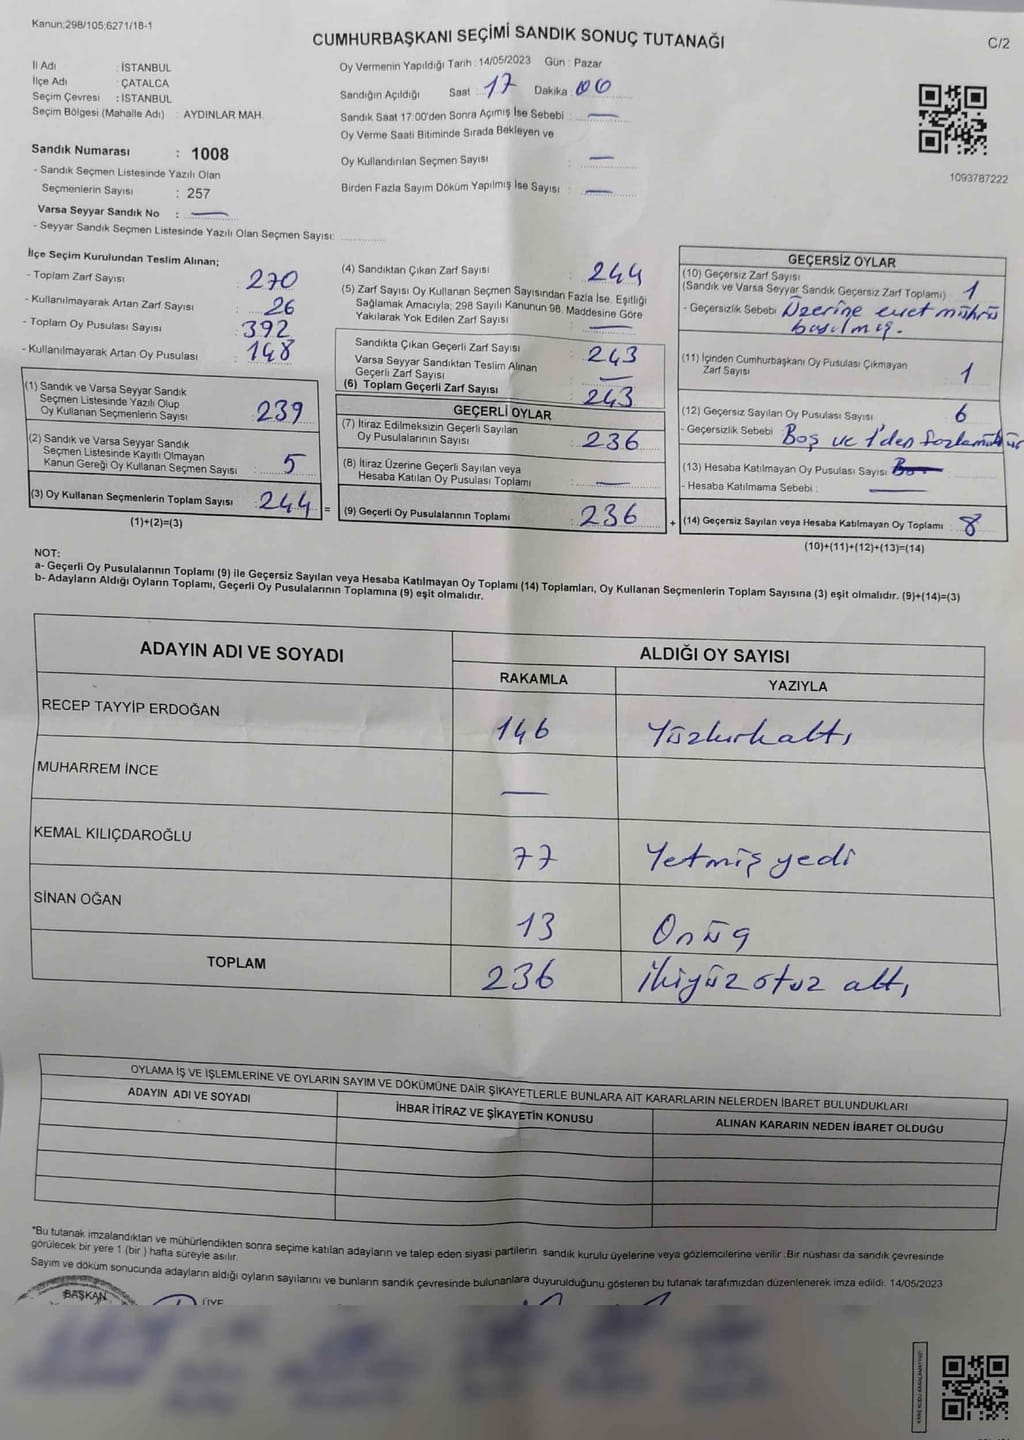 Kanun:298/105;6271/18-1
CUMHURBAŞKANI SEÇİMİ SANDIK SONUÇ TUTANAĞI
C/2
İl Adı : İSTANBUL
İlçe Adı : ÇATALCA
Seçim Çevresi : İSTANBUL
Seçim Bölgesi (Mahalle Adı) : AYDINLAR MAH.
Sandık Numarası : 1008
- Sandık Seçmen Listesinde Yazılı Olan
Seçmenlerin Sayısı : 257
Varsa Seyyar Sandık No : —
- Seyyar Sandık Seçmen Listesinde Yazılı Olan Seçmen Sayısı:
Oy Vermenin Yapıldığı Tarih : 14/05/2023 Gün : Pazar
Sandığın Açıldığı Saat : 17 Dakika : 00
Sandık Saat 17:00'den Sonra Açımış İse Sebebi : —
Oy Verme Saati Bitiminde Sırada Bekleyen ve
Oy Kullandırılan Seçmen Sayısı : —
Birden Fazla Sayım Döküm Yapılmış İse Sayısı : —
1093787222
İlçe Seçim Kurulundan Teslim Alınan;
- Toplam Zarf Sayısı : 270
- Kullanılmayarak Artan Zarf Sayısı : 26
- Toplam Oy Pusulası Sayısı : 392
- Kullanılmayarak Artan Oy Pusulası : 148
(1) Sandık ve Varsa Seyyar Sandık
Seçmen Listesinde Yazılı Olup
Oy Kullanan Seçmenlerin Sayısı : 239
(2) Sandık ve Varsa Seyyar Sandık
Seçmen Listesinde Kayıtlı Olmayan
Kanun Gereği Oy Kullanan Seçmen Sayısı : 5
(3) Oy Kullanan Seçmenlerin Toplam Sayısı : 244 =
(1)+(2)=(3)
(4) Sandıktan Çıkan Zarf Sayısı : 244
(5) Zarf Sayısı Oy Kullanan Seçmen Sayısından Fazla İse, Eşitliği
Sağlamak Amacıyla; 298 Sayılı Kanunun 98. Maddesine Göre
Yakılarak Yok Edilen Zarf Sayısı : —
Sandıkta Çıkan Geçerli Zarf Sayısı : 243
Varsa Seyyar Sandıktan Teslim Alınan
Geçerli Zarf Sayısı : —
(6) Toplam Geçerli Zarf Sayısı : 243
GEÇERLİ OYLAR
(7) İtiraz Edilmeksizin Geçerli Sayılan
Oy Pusulalarının Sayısı : 236
(8) İtiraz Üzerine Geçerli Sayılan veya
Hesaba Katılan Oy Pusulası Toplamı : —
(9) Geçerli Oy Pusulalarının Toplamı : 236 +
GEÇERSİZ OYLAR
(10) Geçersiz Zarf Sayısı
(Sandık ve Varsa Seyyar Sandık Geçersiz Zarf Toplamı) : 1
- Geçersizlik Sebebi : Üzerine evet mührü
basılmış.
(11) İçinden Cumhurbaşkanı Oy Pusulası Çıkmayan
Zarf Sayısı : 1
(12) Geçersiz Sayılan Oy Pusulası Sayısı : 6
- Geçersizlik Sebebi : Boş ve 1'den fazla mühür
(13) Hesaba Katılmayan Oy Pusulası Sayısı :
- Hesaba Katılmama Sebebi : —
(14) Geçersiz Sayılan veya Hesaba Katılmayan Oy Toplamı : 8
(10)+(11)+(12)+(13)=(14)
NOT:
a- Geçerli Oy Pusulalarının Toplamı (9) ile Geçersiz Sayılan veya Hesaba Katılmayan Oy Toplamı (14) Toplamları, Oy Kullanan Seçmenlerin Toplam Sayısına (3) eşit olmalıdır. (9)+(14)=(3)
b- Adayların Aldığı Oyların Toplamı, Geçerli Oy Pusulalarının Toplamına (9) eşit olmalıdır.
ADAYIN ADI VE SOYADI
ALDIĞI OY SAYISI
RAKAMLA YAZIYLA
RECEP TAYYİP ERDOĞAN 146 Yüzkırkaltı
MUHARREM İNCE —
KEMAL KILIÇDAROĞLU 77 Yetmişyedi
SİNAN OĞAN 13 Onüç
TOPLAM 236 İkiyüz otuz altı
OYLAMA İŞ VE İŞLEMLERİNE VE OYLARIN SAYIM VE DÖKÜMÜNE DAİR ŞİKAYETLERLE BUNLARA AİT KARARLARIN NELERDEN İBARET BULUNDUKLARI
ADAYIN ADI VE SOYADI
İHBAR İTİRAZ VE ŞİKAYETİN KONUSU
ALINAN KARARIN NEDEN İBARET OLDUĞU
*Bu tutanak imzalandıktan ve mühürlendikten sonra seçime katılan adayların ve talep eden siyasi partilerin sandık kurulu üyelerine veya gözlemcilerine verilir .Bir nüshası da sandık çevresinde
görülecek bir yere 1 (bir ) hafta süreyle asılır.
Sayım ve döküm sonucunda adayların aldığı oyların sayılarını ve bunların sandık çevresinde bulunanlara duyurulduğunu gösteren bu tutanak tarafımızdan düzenlenerek imza edildi. 14/05/2023
BAŞKAN
ÜYE